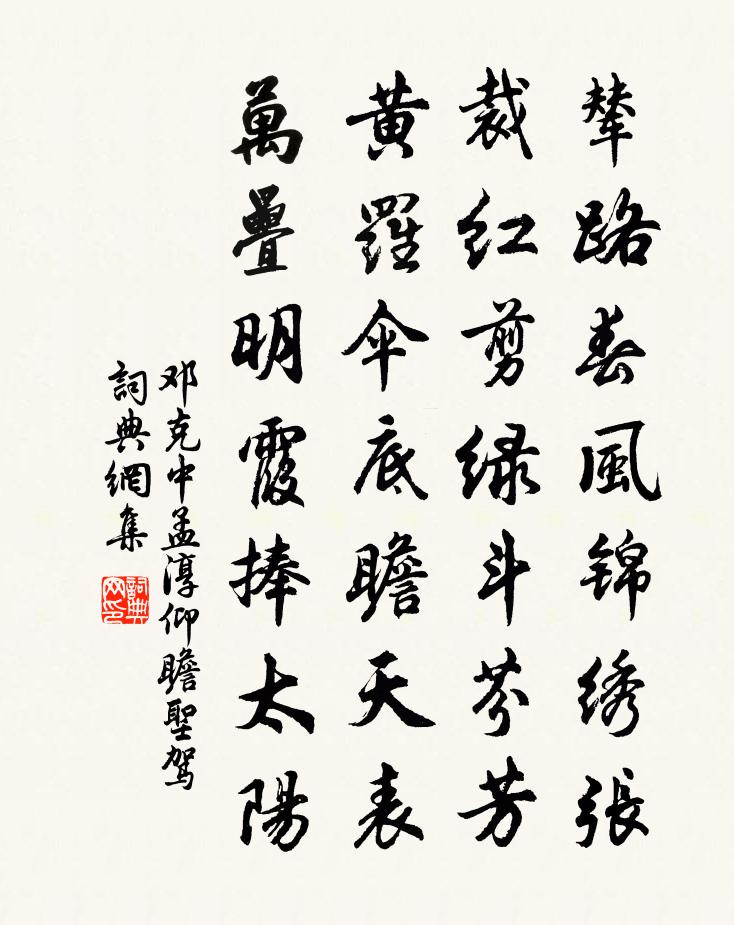 輦路春風锦绣張
裁红剪绿斗芬芳
黄羅伞底瞻天表
萬疊明霞捧太陽
邓克中孟淳仰瞻聖驾
詞典網集
詞典网印